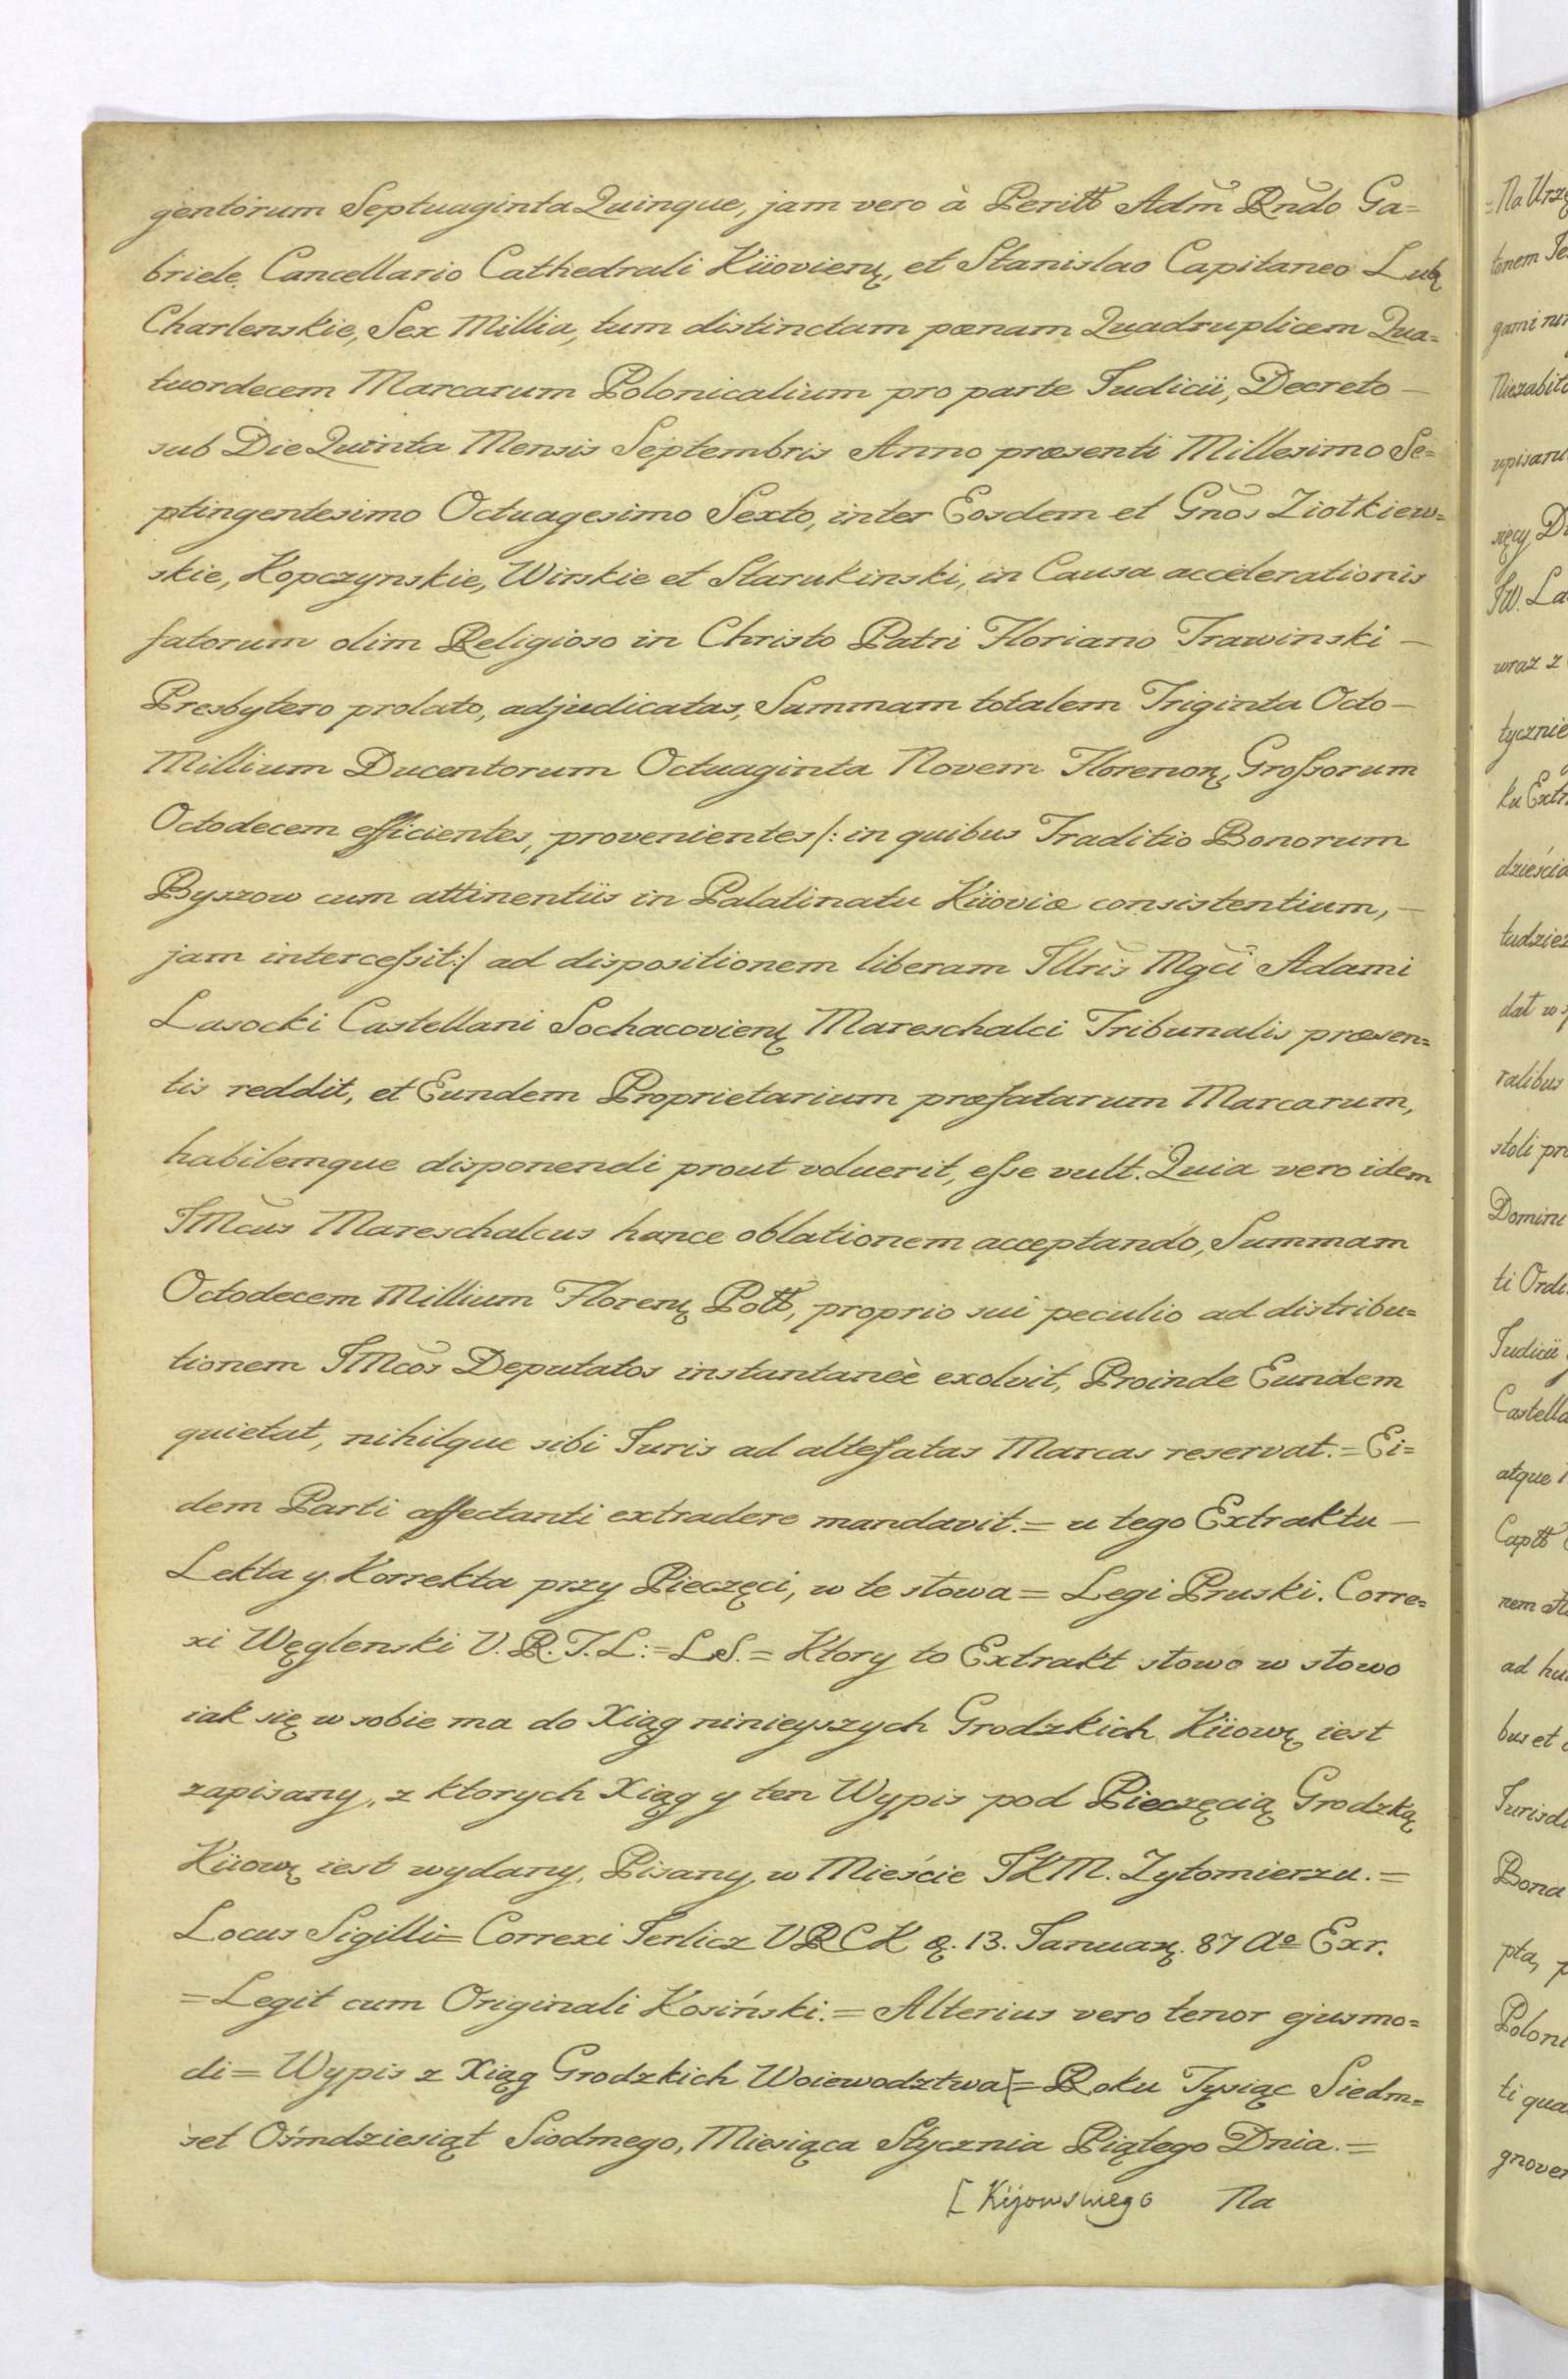 gentorum Septuaginta Quinque, jam vero à Peritt Adm̃ Rñdo Ga=
briele Cancellario Cathedrali Kiiovien̨, et Stanislao Capitaneo Lub̨
Charlenskie, Sex Millia, tum distinctam pœnam Quadruplicem Qua=
tuordecem Marcarum Polonicalium pro parte Judicii, Decreto —
sub Die Quinta Mensis Septembris Anno præsenti Millesimo Se=
ptingentesimo Octuagesimo Sexto, inter Eosdem et Gños Ziołkiew=
skie, Kopczynskie, Wirskie et Starukinski, in Causa accelerationis
fatorum olim Religioso in Christo Patri Floriano Trawinski —
Presbytero prolato, adjudicatas, Summam totalem Triginta Octo —
Millium Ducentorum Octuaginta Novem Florenor̨, Grossorum
Octodecem efficientes, provenientes /: in quibus Traditio Bonorum
Byszow cum attinentiis in Palatinatu Kiioviæ consistentium, —
jam intercessit :/ ad dispositionem liberam Jllris̃ Mgcĩ Adami
Lasocki Castellani Sochacovien̨ Mareschalci Tribunalis præsen=
tis reddit, et Eundem Proprietarium præfatarum Marcarum,
habilemque disponendi prout voluerit, esse vult. Quia vero idem
JMcus̃ Mareschalcus hance oblationem acceptando, Summam
Octodecem Millium Floren̨ Poltt, proprio sui peculio ad distribu=
tionem JMcos̃ Deputatos instantaneè exolvit, Proinde Eundem
quietat, nihilque sibi Juris ad altefatas Marcas reservat. = Ei=
dem Parti affectanti extradere mandavit. = u tego Extraktu —
Lekta y Korrekta przy Pieczęci, w te słowa = Legi Pruski. Corre=
xi Węglenski V. R. T. L: = LS. = Ktory to Extrakt słowo w słowo
iak się w sobie ma do Xiąg ninieyszych Grodzkich Kiiow̨ iest
zapisany, z ktorych Xiąg y ten Wypis pod Pieczęcią Grodzką
Kiiow̨ iest wydany, Pisany w Mieście JKM. Zytomierzu. =
Locus Sigilli = Correxi Terlicz VRCK 13. Januar̨. 87 Aº Exr.
= Legit cum Originali Kosiński. = Alterius vero tenor ejusmo=
di = Wypis z Xiąg Grodzkich Woiewodztwa [= Roku Tysiąc Siedm=
set Ośmdziesiąt Siodmego, Miesiąca Stycznia Piątego Dnia. =
[ Kijowskiego Na
= Na Urzę
tonem
gami
Niezabit
upisan
sięcy
JW. La
wraz z
tycznie
ku Extr
dzieścia
tudziez
dał w
ralibus
stoli pr
Domin
ti Ordi
Judicii
Castella
atque
Captt
rem
ad hu
bus et
Jurisdi
Bona
pta, p
Poloni
ti qua
gnover